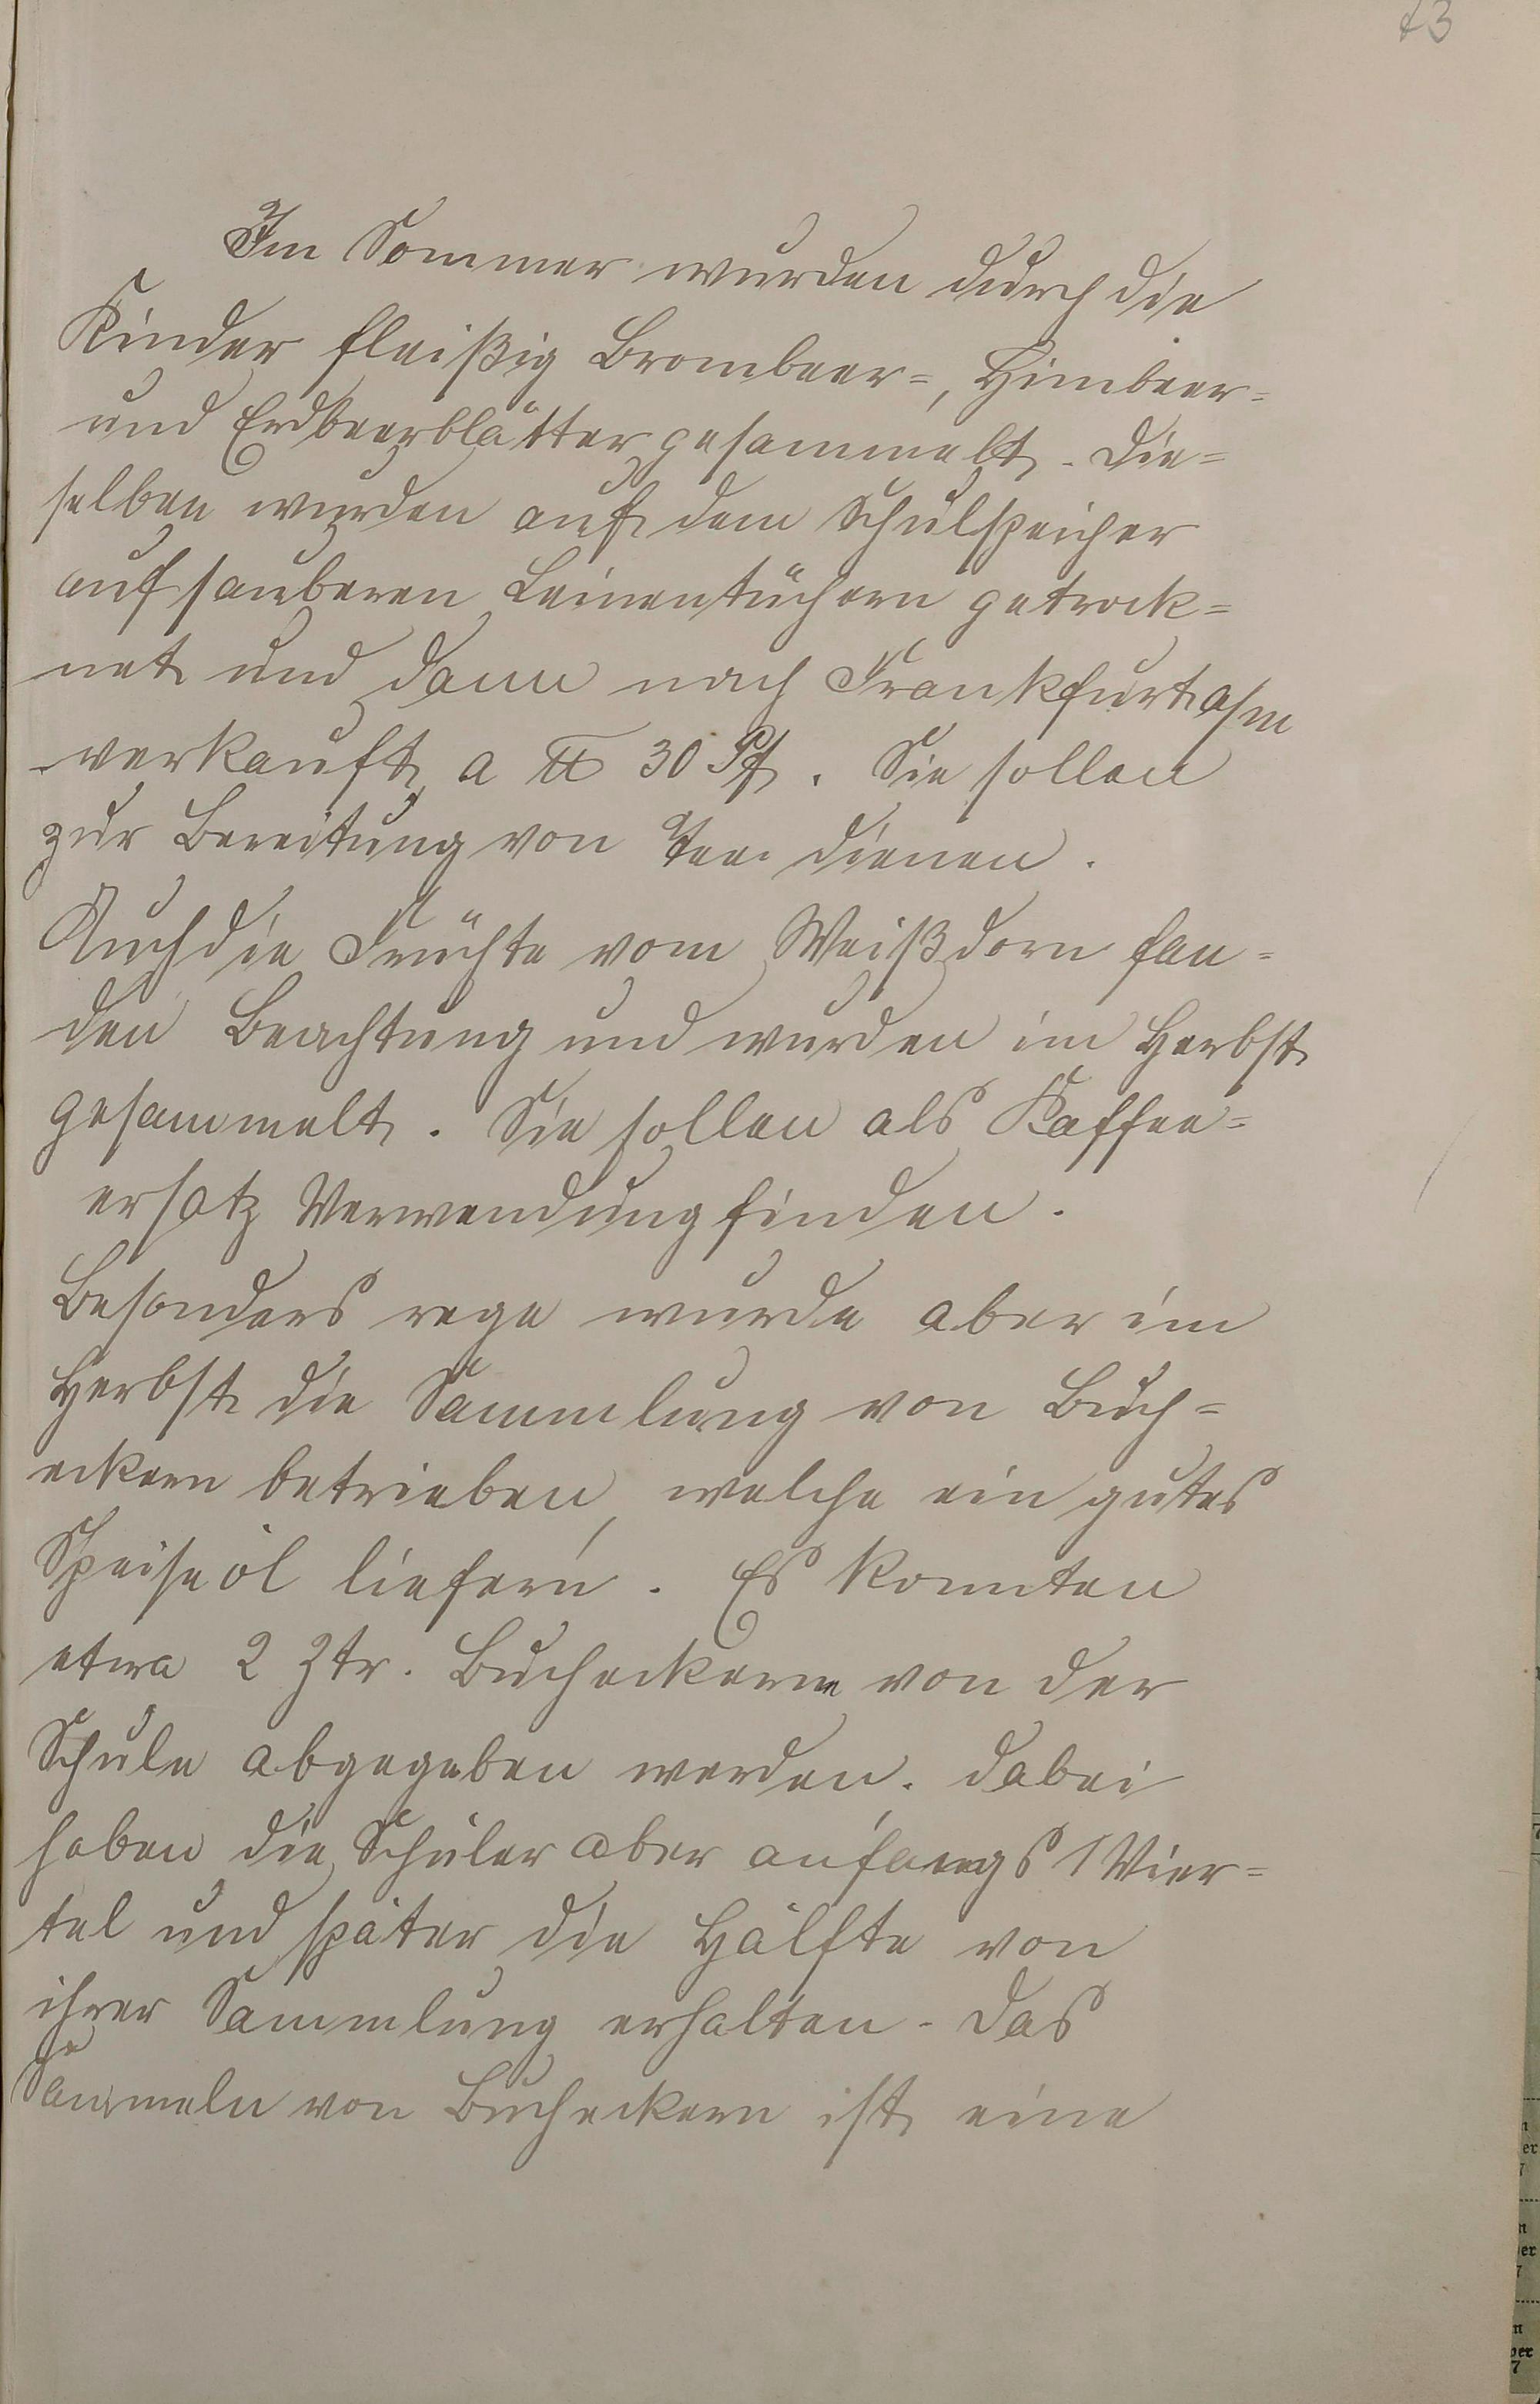 73
Im Sommer wurden durch die
Kinder fleißig Brombeer=, Himbeer=
und Erdbeerblätter gesammelt. Die=
selben wurden auf dem Schulspeicher
auf sauberen Leinentüchern getrock=
net und dann nach Frankfurt a/m
verkauft, a ℔ 30 Pf. Sie sollen
zur Bereitung von Tee dienen.
Auch die Früchte vom Weißdorn fan=
den Beachtung und wurden im Herbst
gesammelt. Sie sollen als Kaffee=
ersatz Verwendung finden.
Besonders rege wurde aber im
Herbst die Sammlung von Buch=
eckern betrieben, welche ein gutes
Speiseöl liefern. Es konnten
etwa 2 Ztr. Bucheckern von der
Schule abgegeben werden. Dabei
haben die Schüler aber anfangs 1 Vier=
tel und später die Hälfte von
ihrer Sammlung erhalten. Das
Sammeln von Bucheckern ist eine